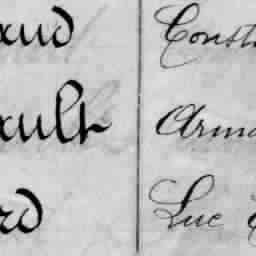 aud Const
ault Arma
rd Luc